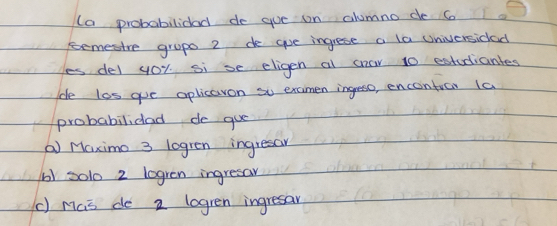 La probabilidad de que un alumno de 6
semestre grupo 2 de que ingrese a la universidad
es del 40% si se eligen al azar 10 estudiantes
de los que aplicaron su examen ingreso, encontrar la
probabilidad de que
a) Maximo 3 logren ingresar
b) solo 2 logren ingresar
c) Más de 2 logren ingresar